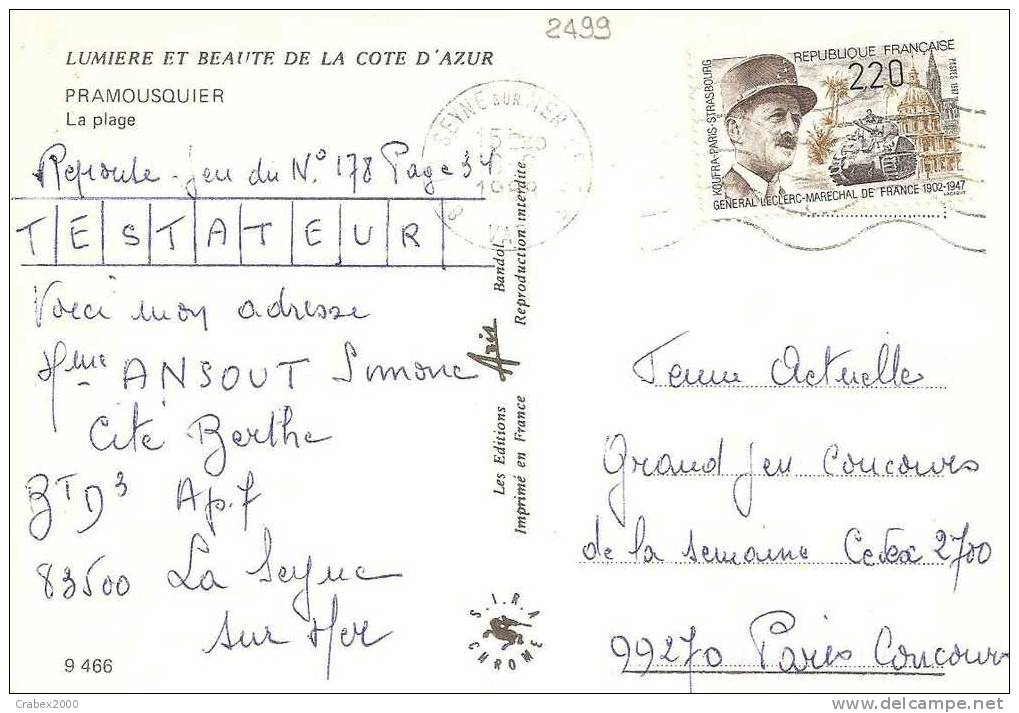 2499
LUMIERE ET BEAUTE DE LA COTE D'AZUR
PRAMOUSQUIER
La plage
Réponse - jeu du N° 178 Page 34
TESTATEUR
Voici mon adresse
Mme ANSOUT Simone
Cité Berthe
BT D3 Ap. 7
83500 La Seyne
sur Mer
9 466
SEYNE SUR MER
15 H
VAR
Les Editions Aris Bandol
Imprimé en France Reproduction interdite
S.I.R.A.
CHROME
REPUBLIQUE FRANÇAISE
2,20
POSTES 1987
KOUFRA-PARIS-STRASBOURG
GENERAL LECLERC-MARECHAL DE FRANCE 1902-1947
LACAQUE
Femme Actuelle
Grand jeu Concours
de la semaine Cedex 2700
99270 Paris Concours
Crabex2000
www.delcampe.net